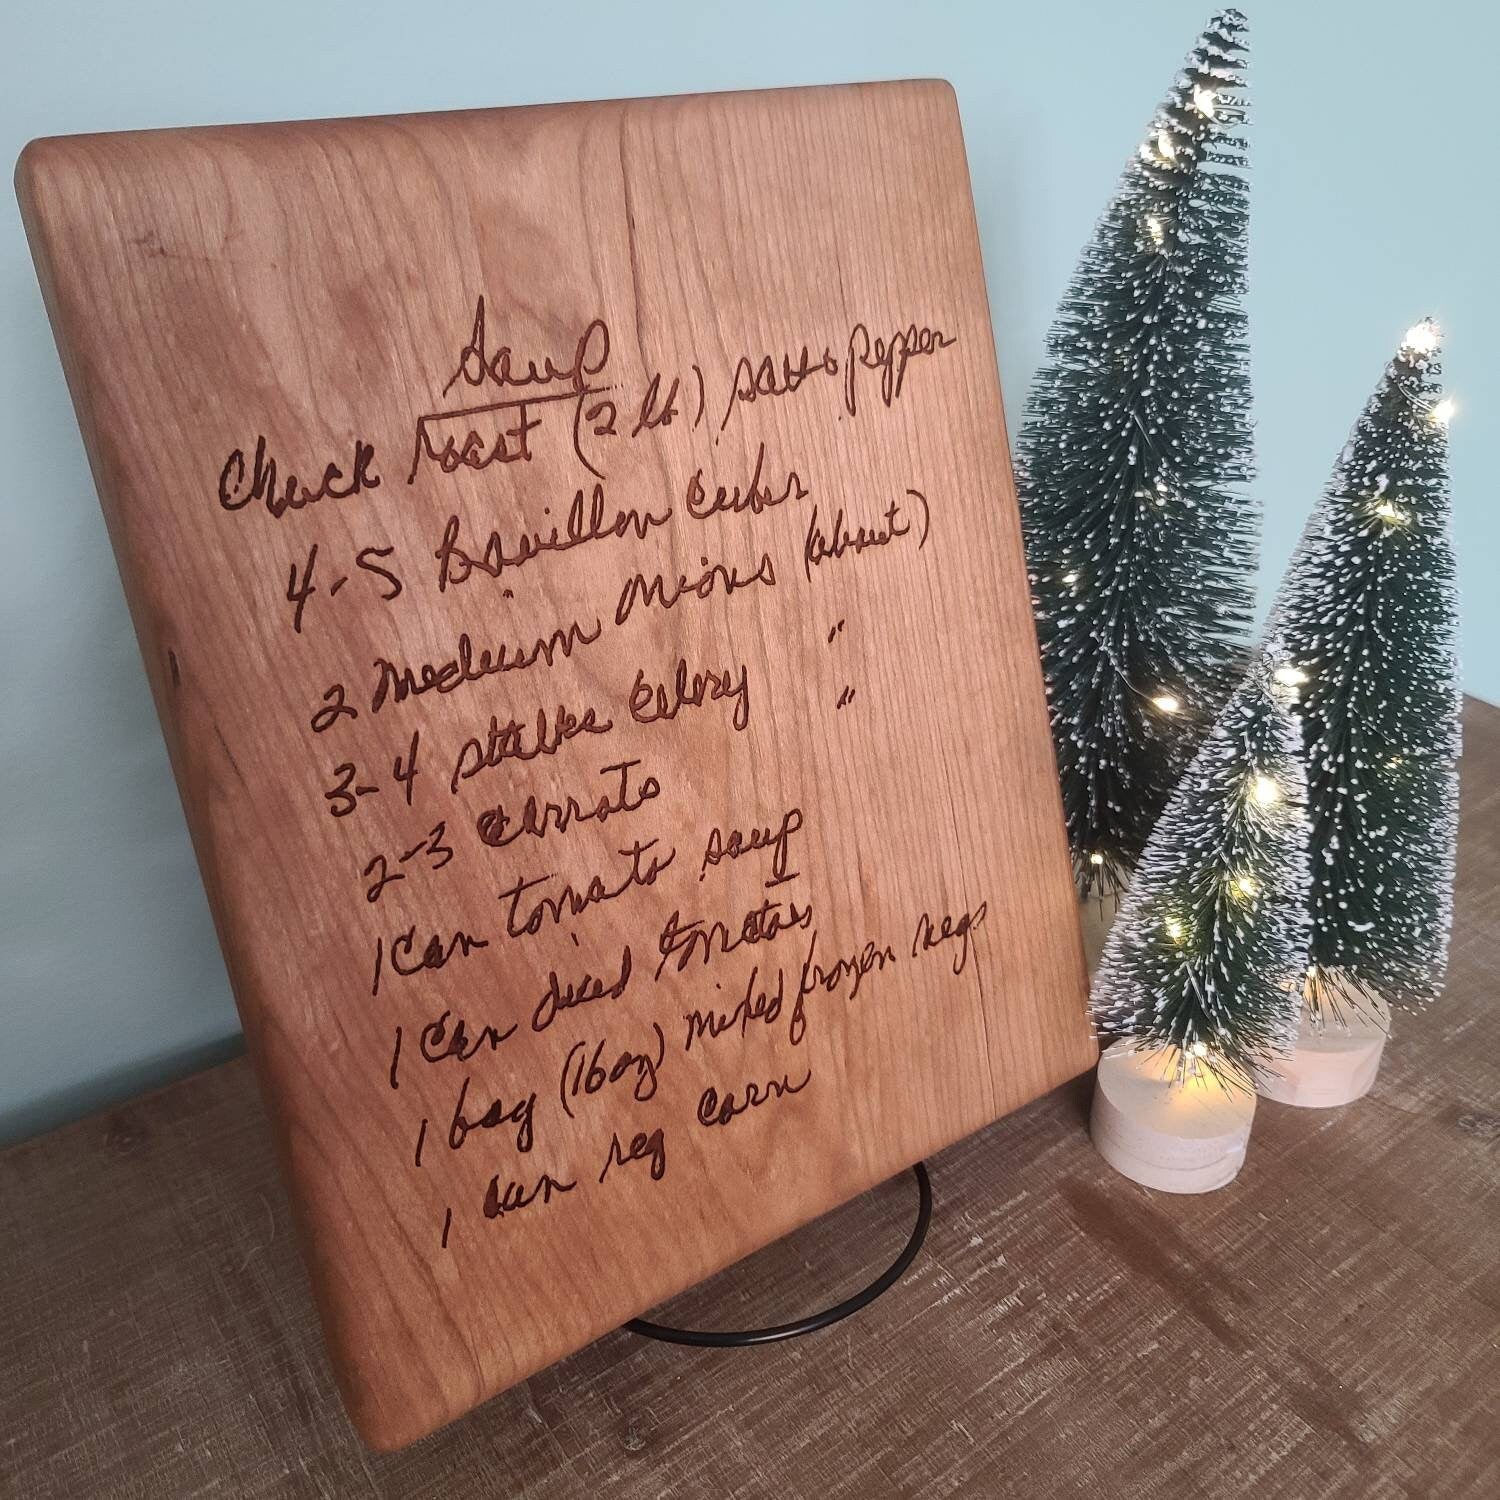 Soup
Chuck roast (2 lb) salt & pepper
4-5 Bouillon Cubes
2 Medium onions (about)
3-4 stalks Celery "
2-3 Carrots "
1 Can tomato soup
1 Can diced tomatoes
1 bag (16oz) mixed frozen vegs
1 can reg corn